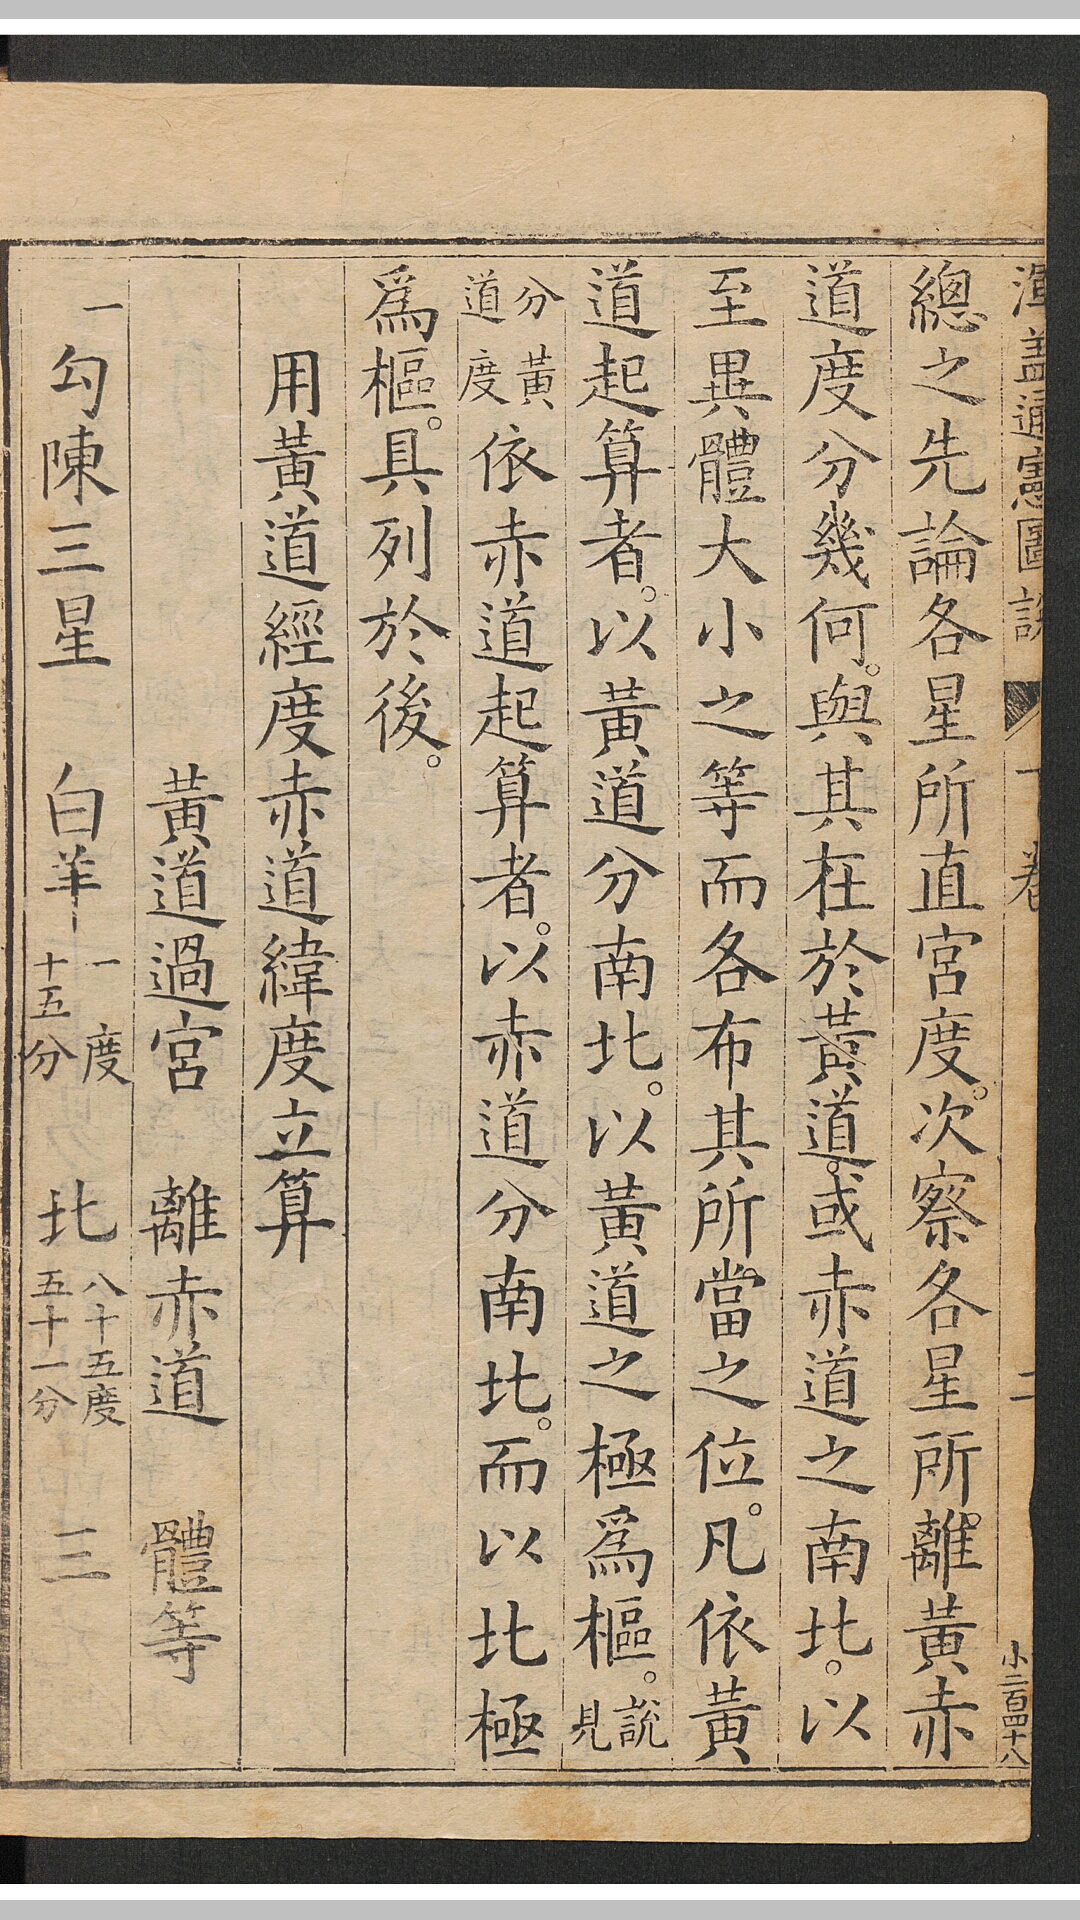 渾蓋通憲圖說 下卷 二 小二百四十八
總之先論各星所直宮度。次察各星所離黃赤
道度分幾何。與其在於黃道。或赤道之南北。以
至異體大小之等而各布其所當之位。凡依黃
道起算者。以黃道分南北。以黃道之極爲樞。說見
分黃道度依赤道起算者。以赤道分南北。而以北極
爲樞。具列於後。
用黃道經度赤道緯度立算
黃道過宮 離赤道 體等
一 勾陳三星 白羊 一度十五分 北 八十五度五十一分 三